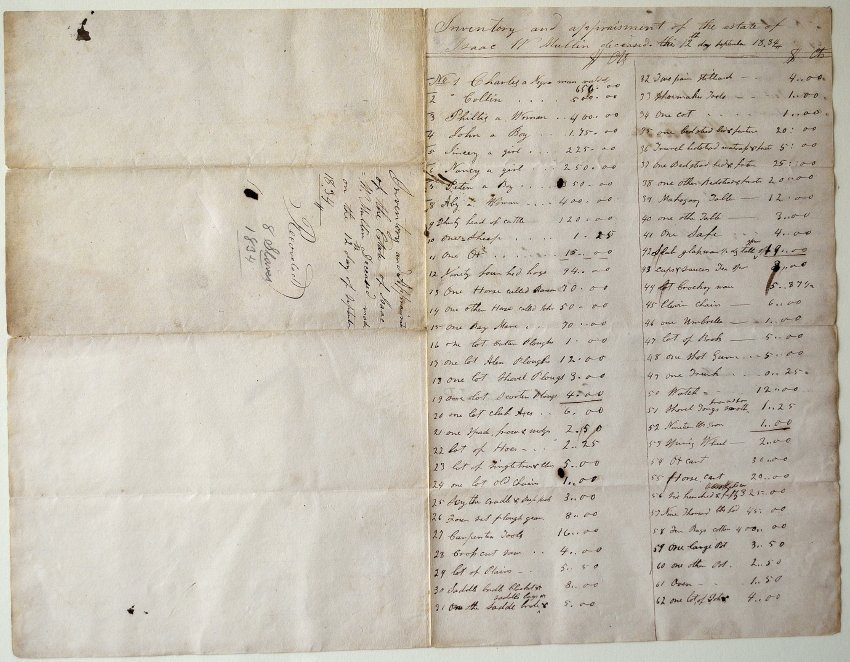 Inventory and appraisment of the estate of
Isaac W Mullin deceased. this 12th day September 1834
$ Cts
No 1 Charles a Negro man 650.00
2 " Collin .... 500.00
3 Phillis a Woman .. 400.00
4 John a Boy .. 175.00
5 a girl .. 225.00
6 Nancy a girl .. 250.00
a Boy .. 350.00
8 a Woman 400.00
9 Thirty head of cattle 120.00
10 one Sheep . . 1.25
11 One Ox . . 15.00
12 Ninety four hed hogs 94.00
13 One Horse called 70.00
14 One other Horse called John 50.00
15 One Bay Mare .. 70.00
16 one lot Cutter Ploughs 1.00
17 one lot Ploughs 12.00
18 one lot Shovel Ploughs 3.00
19 one lot Scooter Plows 4.00
20 one lot club Axes .. 6.00
21 one Spade, froe & wedge 2.50
22 lot of Hoes 2.25
23 lot of 5.00
24 one lot Old Chains 1.00
25 Scythe cradle & 3.00
26 set plough gear 8.00
27 Carpenter Tools 16.00
28 Cross cut saw .. 4.00
29 lot of Plains 5.50
30 Saddle bridle Blanket & 8.00
saddle bags
31 One other Saddle bridle & 5.00
$ Cts
32 Two pair Stillards 4.00
33 Shoemaker Tools 1.00
34 one cot . . 1.00
35 one bedsted bed & furniture 20.00
36 bedsted matrass & furniture 5.00
37 one Bedsted bed & furniture 25.00
38 one other Bedsted & furniture 20.00
39 Mahogany Table 12.00
40 one other Table 3.00
41 one Safe 4.00
43 cups & saucers
44 lot Crockery ware 5.87½
45 Eleven chairs 6.00
46 one Umbrella 1.00
47 lot of Books 5.00
48 one Shot Gun 5.00
49 one Trunk 0.25
50 Watch 12.00
51 Shovel Tongs 1.25
52 1.00
53 Spining Wheel 2.00
54 Ox cart 30.00
55 Horse cart 20.00
56 Six hundred & fifty 325.00
57 Nine Thousand lbs fod 45.00
58 Ten Bags cotton 400.00
59 one large Pot 3.50
60 one other Pot 2.50
61 Oven 1.50
62 one lot of 4.00
Inventory and Appraisment
of the Estate of Isaac
W Mullin Deceased made
on the 12th day of Septembr
1834
Recorded
8 Slaves
1834